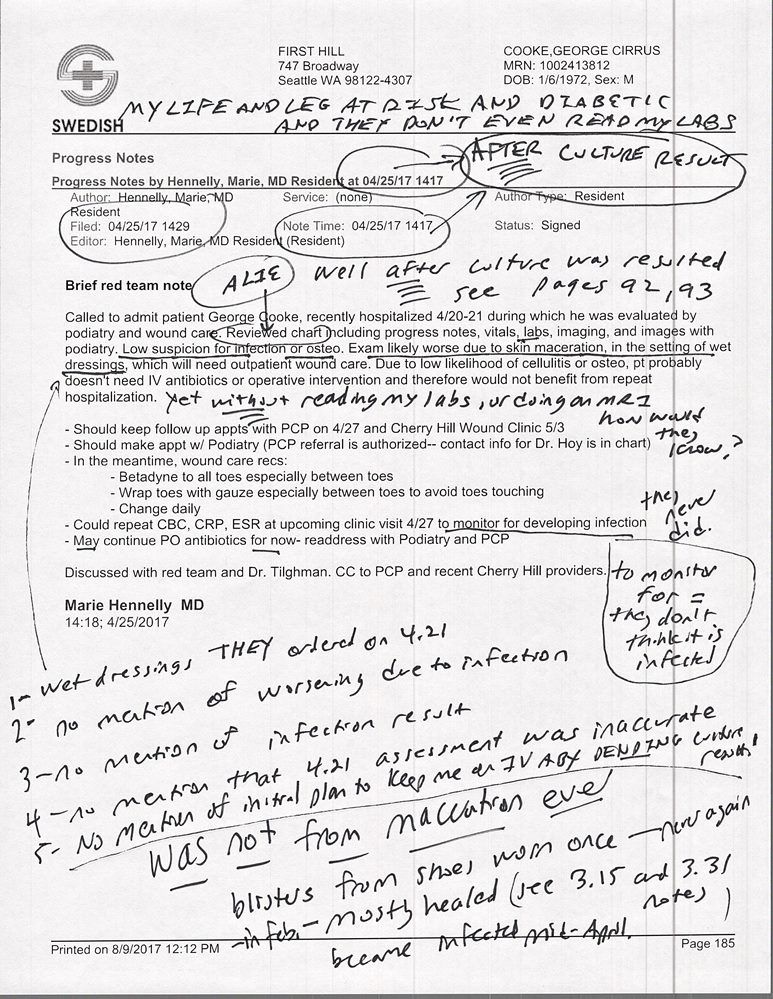 FIRST HILL
747 Broadway
Seattle WA 98122-4307
COOKE,GEORGE CIRRUS
MRN: 1002413812
DOB: 1/6/1972, Sex: M
SWEDISH
MY LIFE AND LEG AT RISK AND DIABETIC
AND THEY DON'T EVEN READ MY LABS
Progress Notes
AFTER CULTURE RESULT
Progress Notes by Hennelly, Marie, MD Resident at 04/25/17 1417
Author: Hennelly, Marie, MD
Resident
Service: (none)
Author Type: Resident
Filed: 04/25/17 1429
Note Time: 04/25/17 1417
Status: Signed
Editor: Hennelly, Marie, MD Resident (Resident)
A LIE
Well after culture was resulted
see pages 92, 93
Brief red team note
Called to admit patient George Cooke, recently hospitalized 4/20-21 during which he was evaluated by
podiatry and wound care. Reviewed chart including progress notes, vitals, labs, imaging, and images with
podiatry. Low suspicion for infection or osteo. Exam likely worse due to skin maceration, in the setting of wet
dressings, which will need outpatient wound care. Due to low likelihood of cellulitis or osteo, pt probably
doesn't need IV antibiotics or operative intervention and therefore would not benefit from repeat
hospitalization.
yet without reading my labs, or doing an MRI
how would
they
know?
- Should keep follow up appts with PCP on 4/27 and Cherry Hill Wound Clinic 5/3
- Should make appt w/ Podiatry (PCP referral is authorized-- contact info for Dr. Hoy is in chart)
- In the meantime, wound care recs:
- Betadyne to all toes especially between toes
- Wrap toes with gauze especially between toes to avoid toes touching
- Change daily
- Could repeat CBC, CRP, ESR at upcoming clinic visit 4/27 to monitor for developing infection
- May continue PO antibiotics for now- readdress with Podiatry and PCP
they
never
did.
Discussed with red team and Dr. Tilghman. CC to PCP and recent Cherry Hill providers.
to monitor
for =
they don't
think it is
infected
Marie Hennelly MD
14:18; 4/25/2017
1- wet dressings THEY ordered on 4.21
2- no mention of worsening due to infection
3- no mention of infection result
4- no mention that 4.21 assessment was inaccurate
5- No mention of initial plan to keep me on IV ABX PENDING culture
results!
was not from maceration ever
blisters from shoes worn once - never again
- in feb. - mostly healed (see 3.15 and 3.31
notes)
became infected mid-April.
Printed on 8/9/2017 12:12 PM
Page 185